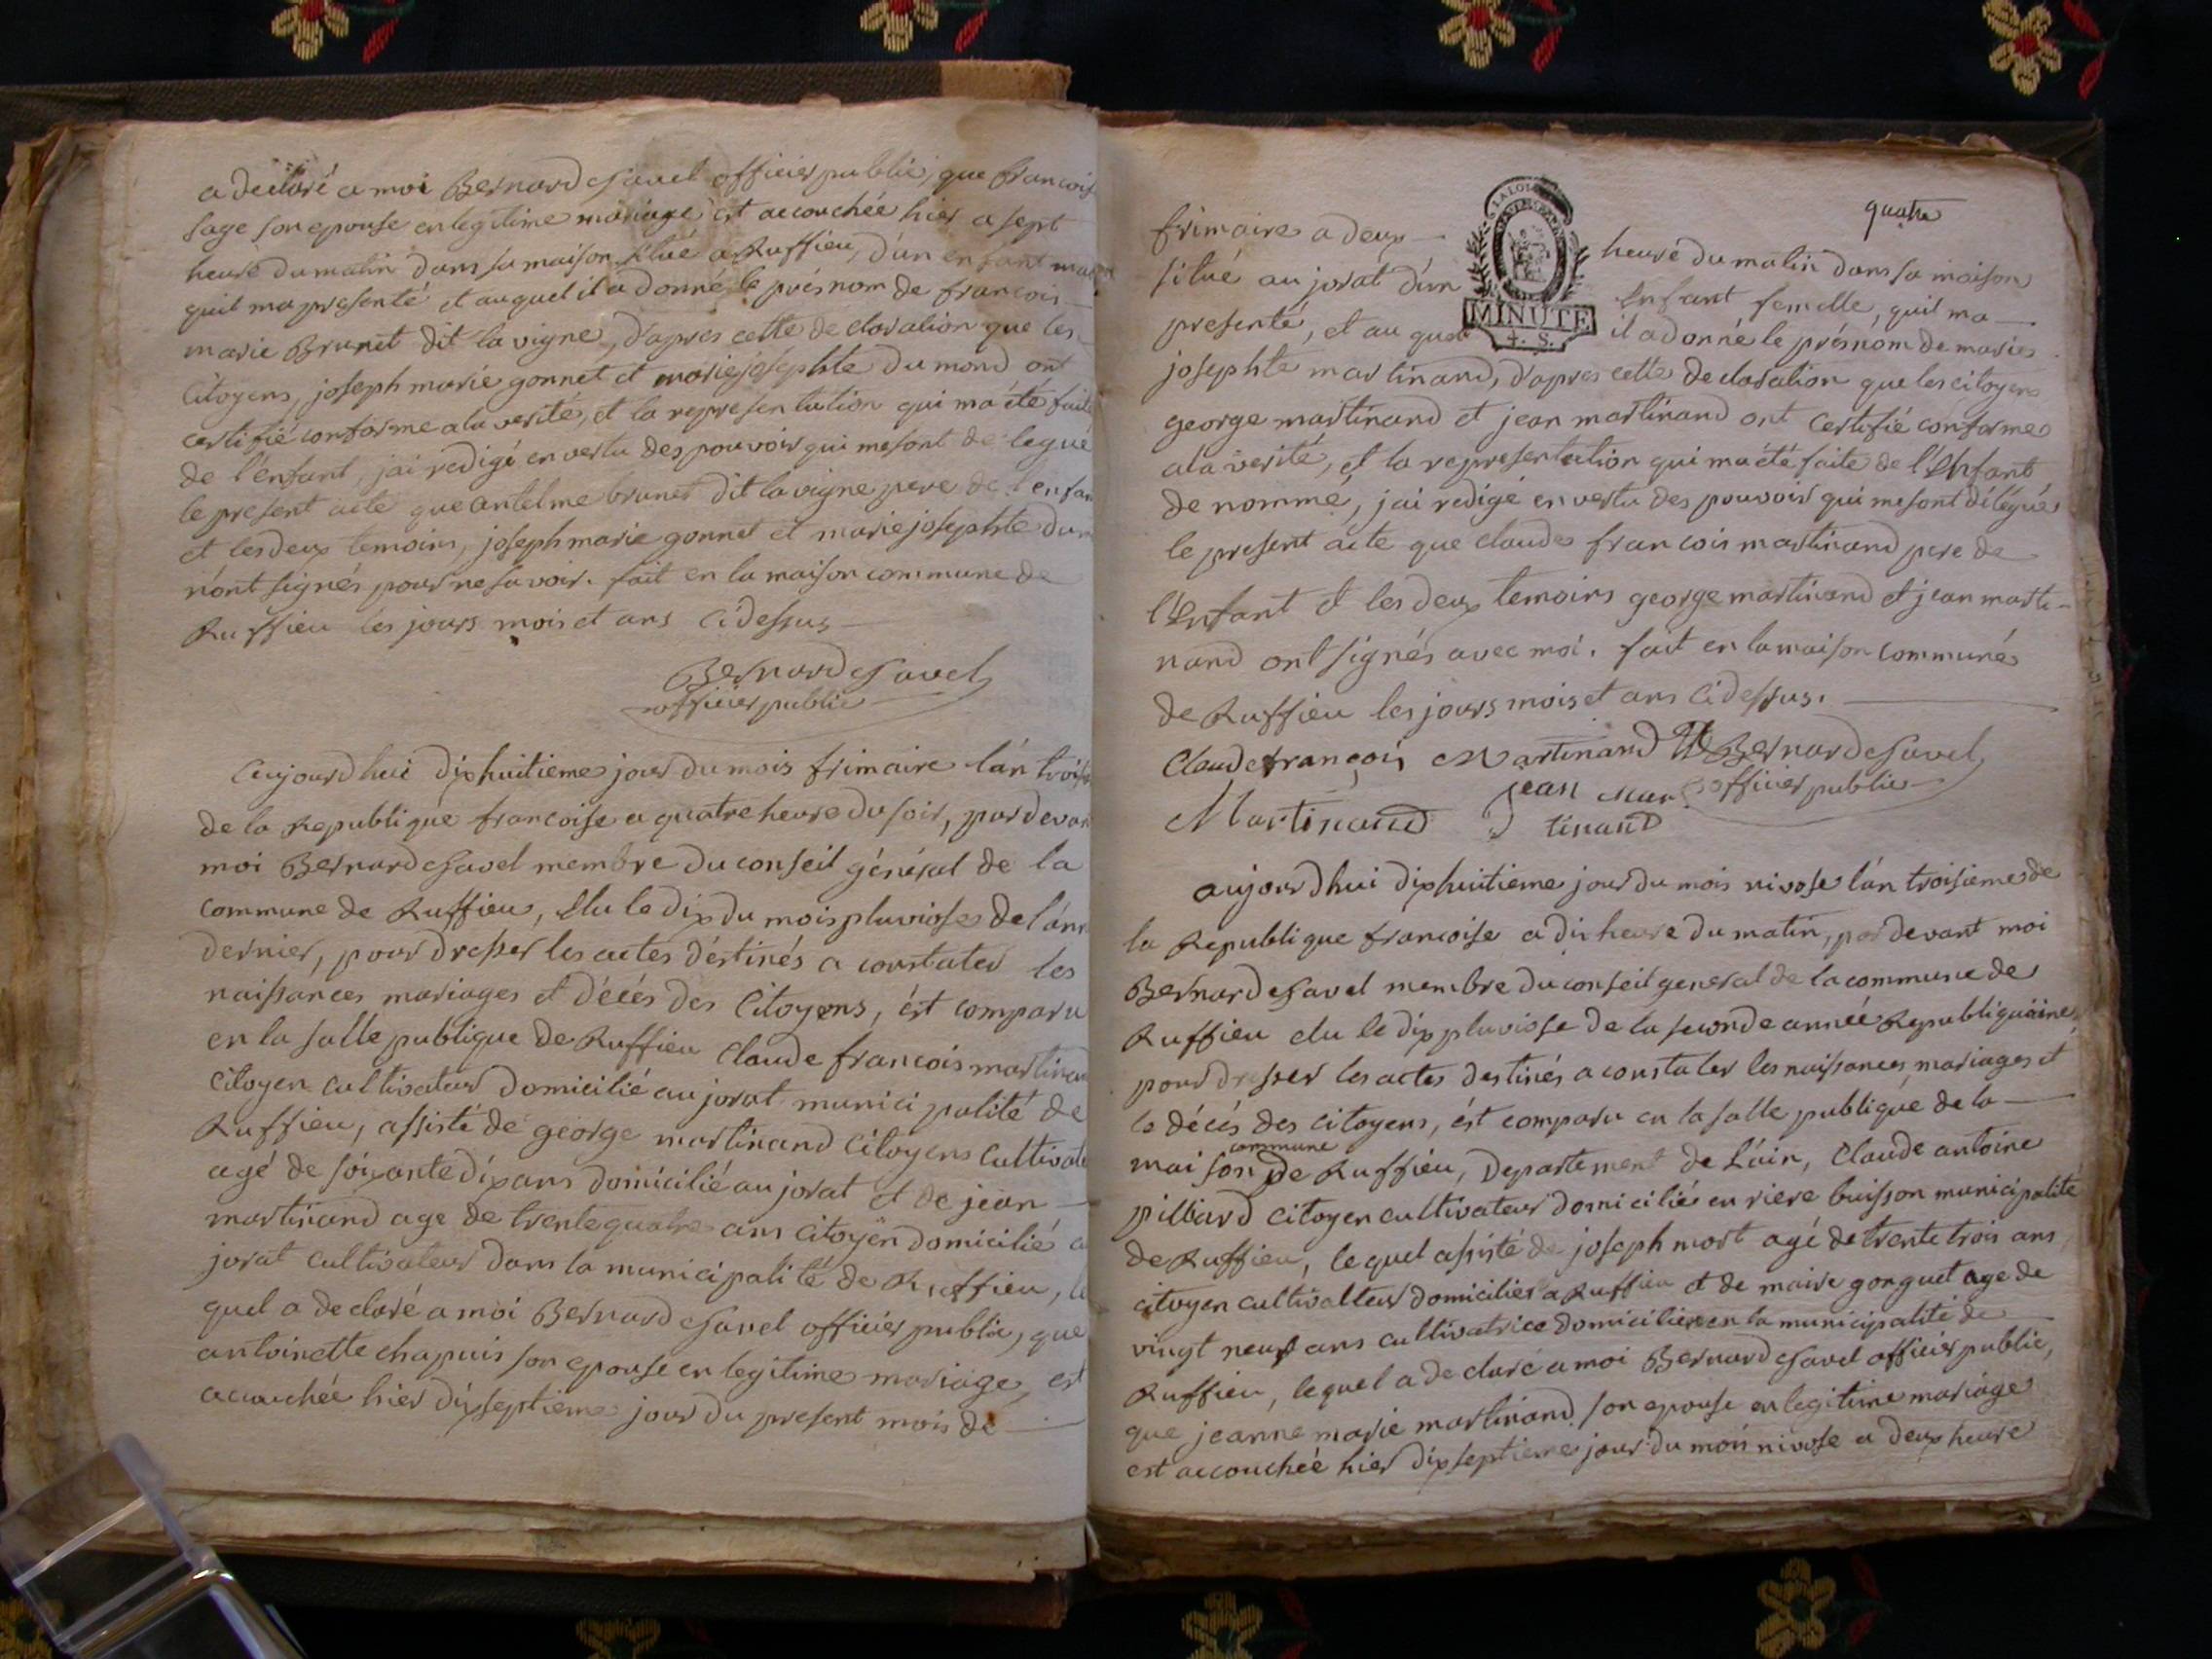 a declaré a moi Bernard Savel officier public, que francois
sage son epouse en legitime mariage est accouchée hier a sept
heure du matin dans sa maison situé a Ruffieu, d'un enfant
quil ma presenté et auquel il a donné le présnom de francois
marie Brunet dit la vigne, d'apres cette declaration que les
Citoyens, joseph marie gonnet et marie josephte du mond ont
certifié conforme a la verité, et la representation qui ma été faite
de l'enfant, jai redigé en vertu des pouvoir qui me sont delegué
le present acte que antelme brunet dit la vigne pere de l'enfan
et les deux temoins, joseph marie gonnet et marie josephte du
n'ont signés pour ne savoir. fait en la maison commune de
Ruffieu les jours mois et ans Ci dessus
Bernard Savel
officier public
Aujourdhui dixhuitieme jour du mois frimaire l'an trois
de la Republique francoise a quatre heure du soir, pardevan
moi Bernard Savel membre du conseil général de la
commune de Ruffieu, Elu le dix du mois pluviose de l'ann
dernier, pour dresser les actes déstinés a constater les
naissances mariages et décés des Citoyens, ést comparu
en la salle publique de Ruffieu Claude francois martinan
Citoyen Cultivateur domicilié au jorat municipalité de
Ruffieu, assisté de george martinand Citoyens Cultivate
agé de soixante dix ans domicilié au jorat et de jean
martinand age de trente quatre ans Citoyen domicilié a
jorat cultivateur dans la municipalité de Ruffieu, le
quel a declaré a moi Bernard Savel officier public, que
antoinette chapuis son epouse en legitime mariage, est
accouchée hier dixseptieme jour du present mois de
quatre
frimaire a deux heure du matin dans sa maison
situé au jorat d'un Enfant femelle, quil ma
presenté, et au quel il a donné le présnom de marie
A LA LOI
MINUTE
4. S.
josephte martinand, d'apres cette declaration que les citoyens
george martinand et jean martinand ont certifié conforme
a la verité, et la representation qui ma été faite de l'Enfant
denommé, jai redigé en vertu des pouvoir qui me sont délégués
le present acte que claude francois martinand pere de
l'Enfant et les deux temoins george martinand et jean marti-
nand ont signés avec moi. fait en la maison commune
de Ruffieu les jours mois et ans Ci dessus.
Claude françois Martinand Bernard Savel
Martinand jean mar officier public
tinand
aujourdhui dixhuitieme jour du mois nivose l'an troisieme de
la Republique francoise a dix heure du matin, pardevant moi
Bernard Savel membre du conseil general de la commune de
Ruffieu elu le dix pluviose de la seconde année Republiquaine
pour dresser les actes destinés a constater les naissances, mariages et
le décés des citoyens, ést comparu en la salle publique de la
commune
maison de Ruffieu, Departement de L'ain, Claude antoine
pillard citoyen cultivateur domicilié en riere buisson municipalité
de Ruffieu, lequel assisté de joseph mort agé de trente trois ans
citoyen cultivatteur domicilier a Ruffieu et de maire gonguet age de
vingt neuf ans cultivatrice domiciliere en la municipalité de
Ruffieu, lequel a declaré a moi Bernard Savel officier public,
que jeanne marie martinand son epouse en legitime mariage
est accouchée hier dixseptieme jour du mois nivose a deux heure